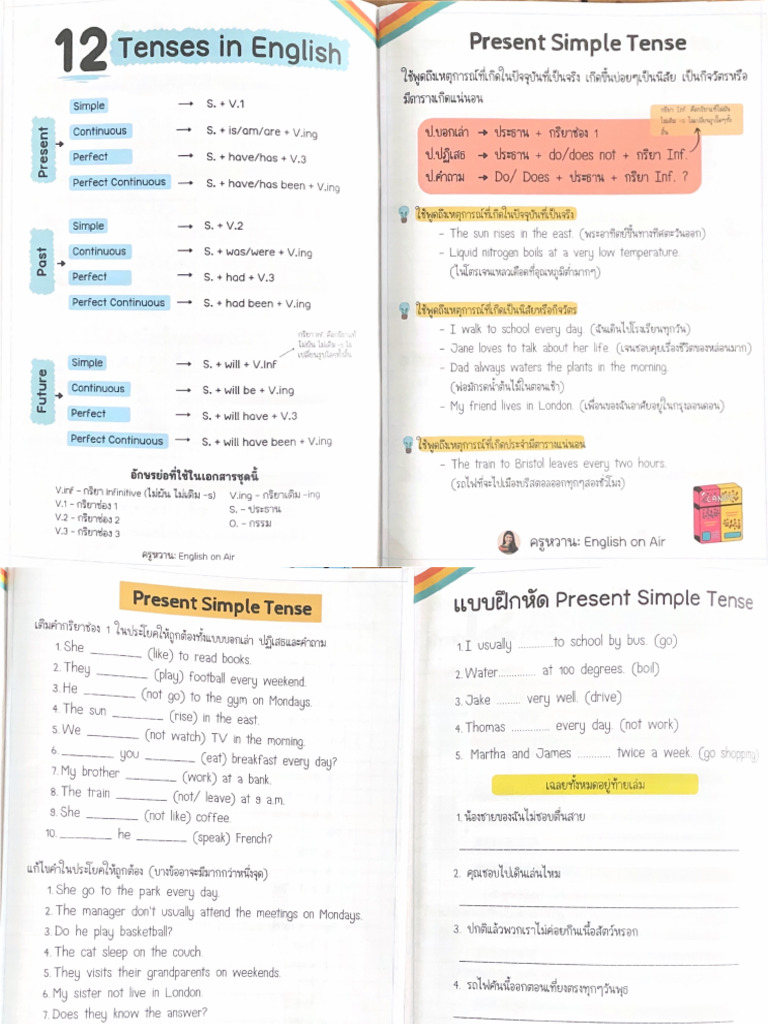 12 Tenses in English
Present
Simple → S. + V.1
Continuous → S. + is/am/are + V.ing
Perfect → S. + have/has + V.3
Perfect Continuous → S. + have/has been + V.ing
Past
Simple → S. + V.2
Continuous → S. + was/were + V.ing
Perfect → S. + had + V.3
Perfect Continuous → S. + had been + V.ing
กริยา Inf. คือกริยาแท้
ไม่ผัน ไม่เติม -s ไม่
เปลี่ยนรูปใดๆทั้งสิ้น
Future
Simple → S. + will + V.Inf
Continuous → S. + will be + V.ing
Perfect → S. + will have + V.3
Perfect Continuous → S. + will have been + V.ing
อักษรย่อที่ใช้ในเอกสารชุดนี้
V.inf - กริยา Infinitive (ไม่ผัน ไม่เติม -s)
V.1 - กริยาช่อง 1
V.2 - กริยาช่อง 2
V.3 - กริยาช่อง 3
V.ing - กริยาเติม -ing
S. - ประธาน
O. - กรรม
ครูหวาน: English on Air
Present Simple Tense
ใช้พูดถึงเหตุการณ์ที่เกิดในปัจจุบันที่เป็นจริง เกิดขึ้นบ่อยๆเป็นนิสัย เป็นกิจวัตรหรือ
มีตารางเกิดแน่นอน
กริยา Inf. คือกริยาแท้ไม่ผัน
ไม่เติม -s ไม่เปลี่ยนรูปใดๆทั้ง
สิ้น
ป.บอกเล่า → ประธาน + กริยาช่อง 1
ป.ปฏิเสธ → ประธาน + do/does not + กริยา Inf.
ป.คำถาม → Do/ Does + ประธาน + กริยา Inf. ?
ใช้พูดถึงเหตุการณ์ที่เกิดในปัจจุบันที่เป็นจริง
- The sun rises in the east. (พระอาทิตย์ขึ้นทางทิศตะวันออก)
- Liquid nitrogen boils at a very low temperature.
(ไนโตรเจนเหลวเดือดที่อุณหภูมิต่ำมากๆ)
ใช้พูดถึงเหตุการณ์ที่เกิดเป็นนิสัยหรือกิจวัตร
- I walk to school every day. (ฉันเดินไปโรงเรียนทุกวัน)
- Jane loves to talk about her life. (เจนชอบคุยเรื่องชีวิตของหล่อนมาก)
- Dad always waters the plants in the morning.
(พ่อมักรดน้ำต้นไม้ในตอนเช้า)
- My friend lives in London. (เพื่อนของฉันอาศัยอยู่ในกรุงลอนดอน)
ใช้พูดถึงเหตุการณ์ที่เกิดประจำมีตารางแน่นอน
- The train to Bristol leaves every two hours.
(รถไฟที่จะไปเมืองบริสตอลออกทุกๆสองชั่วโมง)
ครูหวาน: English on Air
Present Simple Tense
เติมคำกริยาช่อง 1 ในประโยคให้ถูกต้องทั้งแบบบอกเล่า ปฏิเสธและคำถาม
1. She ________ (like) to read books.
2. They ________ (play) football every weekend.
3. He ________ (not go) to the gym on Mondays.
4. The sun ________ (rise) in the east.
5. We ________ (not watch) TV in the morning.
6. ________ you ________ (eat) breakfast every day?
7. My brother ________ (work) at a bank.
8. The train ________ (not/ leave) at 9 a.m.
9. She ________ (not like) coffee.
10. ________ he ________ (speak) French?
แก้ไขคำในประโยคให้ถูกต้อง (บางข้ออาจจะมีมากกว่าหนึ่งจุด)
1. She go to the park every day.
2. The manager don't usually attend the meetings on Mondays.
3. Do he play basketball?
4. The cat sleep on the couch.
5. They visits their grandparents on weekends.
6. My sister not live in London.
7. Does they know the answer?
แบบฝึกหัด Present Simple Tense
1. I usually ..........to school by bus. (go)
2. Water........... at 100 degrees. (boil)
3. Jake ........ very well. (drive)
4. Thomas .......... every day. (not work)
5. Martha and James .......... twice a week. (go shopping)
เฉลยทั้งหมดอยู่ท้ายเล่ม
1. น้องชายของฉันไม่ชอบตื่นสาย
2. คุณชอบไปเดินเล่นไหม
3. ปกติแล้วพวกเราไม่ค่อยกินเนื้อสัตว์หรอก
4. รถไฟคันนี้ออกตอนเที่ยงตรงทุกๆวันพุธ